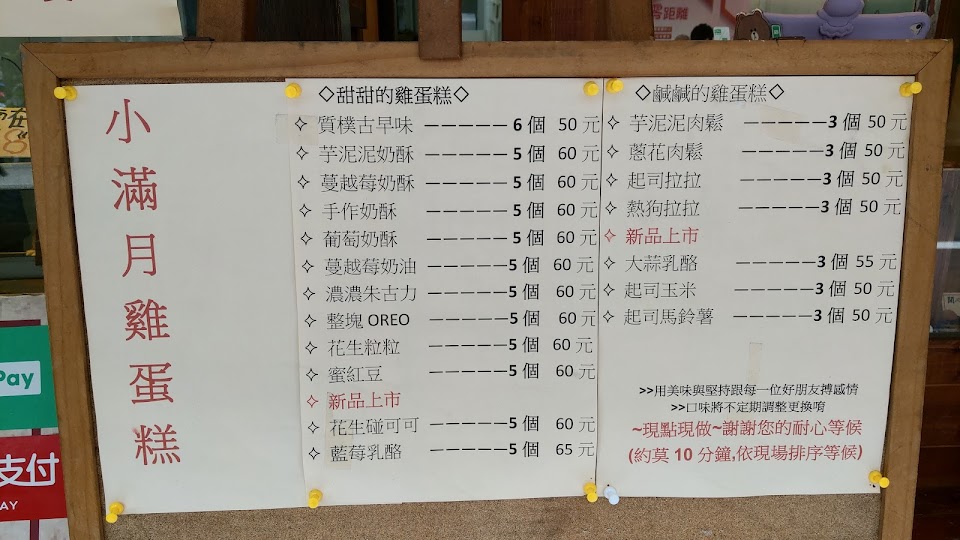 小滿月雞蛋糕
◇甜甜的雞蛋糕◇
✧ 質樸古早味 ————— 6 個 50 元
✧ 芋泥泥奶酥 ————— 5 個 60 元
✧ 蔓越莓奶酥 ————— 5 個 60 元
✧ 手作奶酥 ————— 5 個 60 元
✧ 葡萄奶酥 ————— 5 個 60 元
✧ 蔓越莓奶油 ————— 5 個 60 元
✧ 濃濃朱古力 ————— 5 個 60 元
✧ 整塊 OREO ————— 5 個 60 元
✧ 花生粒粒 ————— 5 個 60 元
✧ 蜜紅豆 ————— 5 個 60 元
✧ 新品上市
✧ 花生碰可可 ————— 5 個 60 元
✧ 藍莓乳酪 ————— 5 個 65 元
◇鹹鹹的雞蛋糕◇
✧ 芋泥泥肉鬆 ————— 3 個 50 元
✧ 蔥花肉鬆 ————— 3 個 50 元
✧ 起司拉拉 ————— 3 個 50 元
✧ 熱狗拉拉 ————— 3 個 50 元
✧ 新品上市
✧ 大蒜乳酪 ————— 3 個 55 元
✧ 起司玉米 ————— 3 個 50 元
✧ 起司馬鈴薯 ————— 3 個 50 元
>>用美味與堅持跟每一位好朋友搏感情
>>口味將不定期調整更換唷
~現點現做~謝謝您的耐心等候
(約莫 10 分鐘,依現場排序等候)
零距離
Pay
支付
PAY